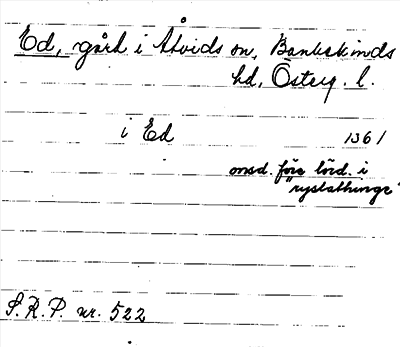 Ed, gård i Åtvids sn, Bankekinds
hd, Österg. l.
i Ed 1361
onsd. före lörd. i
"nystathinge"
S.R.P. nr. 522